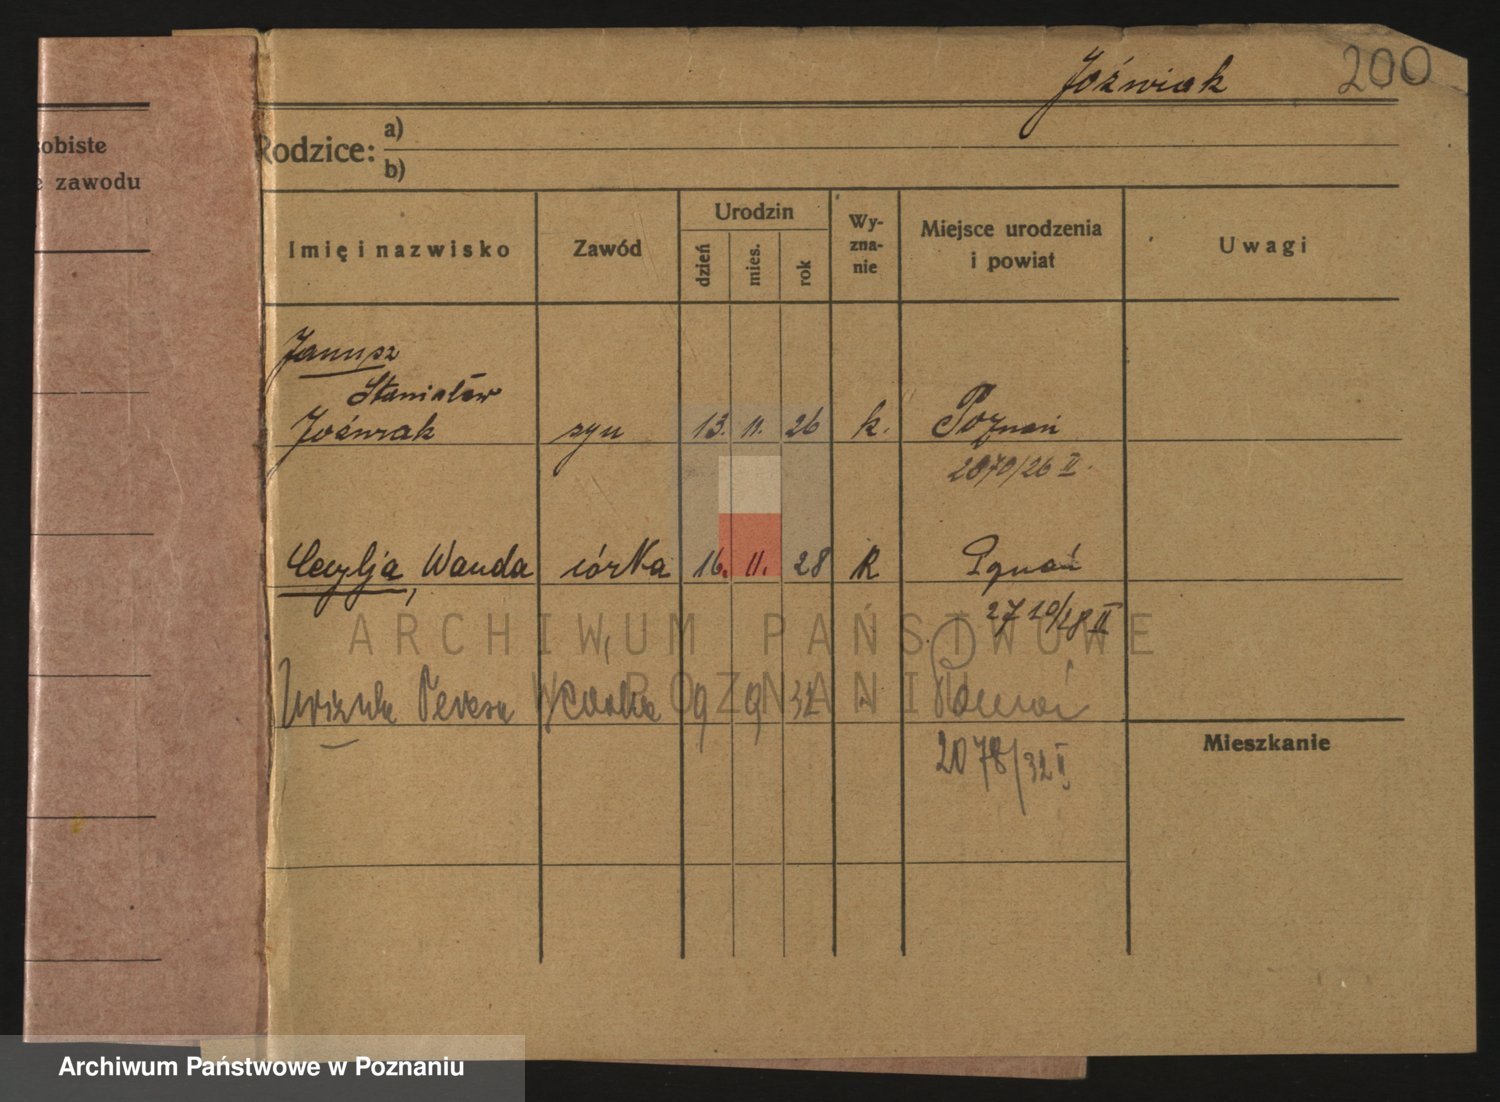 Jóźwiak 200
sobiste
e zawodu
Rodzice: a)
b)
Imię i nazwisko Zawód Urodzin dzień mies. rok Wy-zna-nie Miejsce urodzenia i powiat Uwagi
Janusz
Stanisław
Jóźwiak syn 13. 11. 26 k. Poznań
2870/26 II.
Cecylja, Wanda córka 16. 11. 28 k Poznań
2710/28 II
Urszula Teresa córka 9 9 32 Poznań
2078/32 II
Mieszkanie
ARCHIWUM PAŃSTWOWE
W POZNANIU
Archiwum Państwowe w Poznaniu